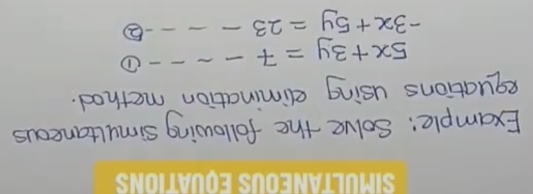 SIMULTANEOUS EQUATIONS
Example: Solve the following Simultaneous
equations using elimination method.
5x + 3y = 7 - - - - ①
-3x + 5y = 23 - - - - ②